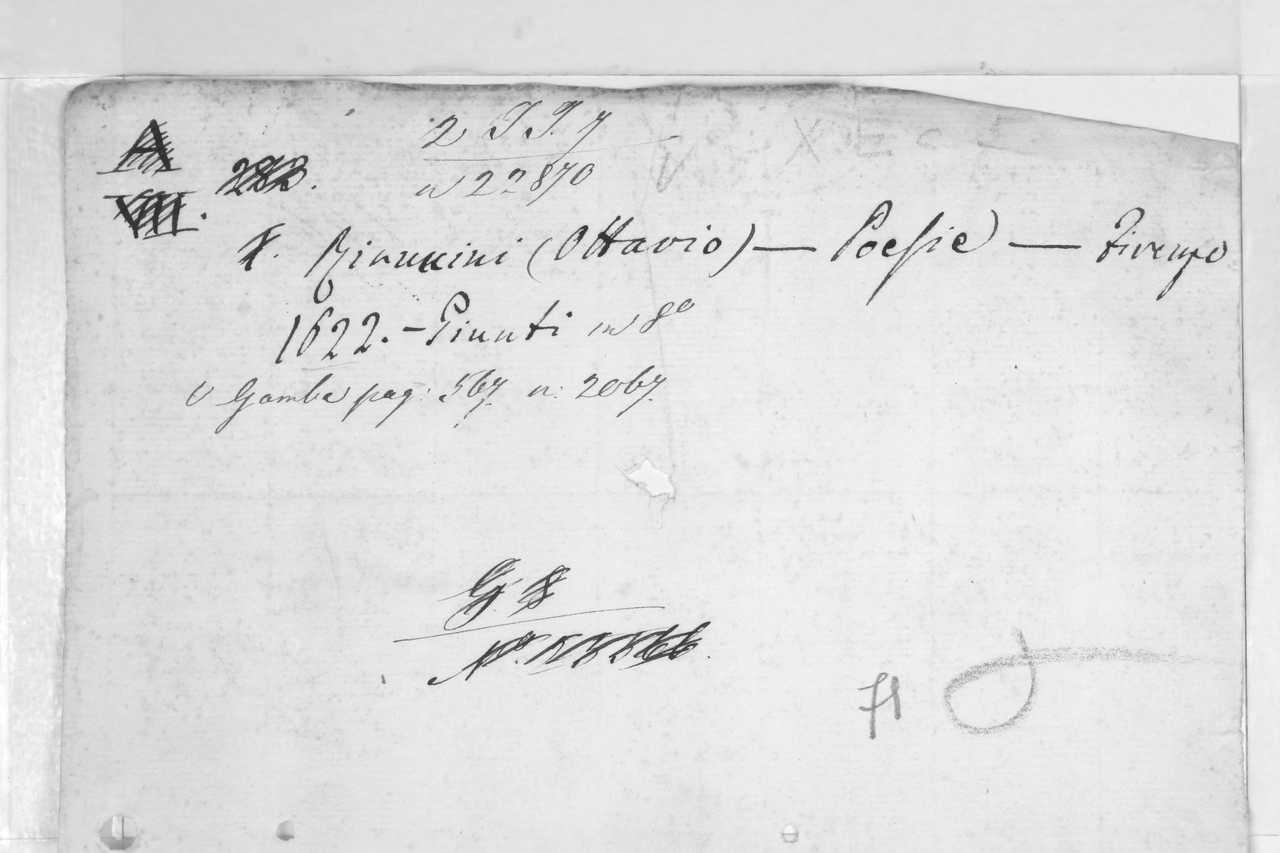 A
VIII.
2 I I. 7
n 22870
X. Rinuccini (Ottavio) — Poesie — Firenze
1622. - Giunti in 8º
V Gamba pag: 567. n: 2067.
G. 8
Nº.